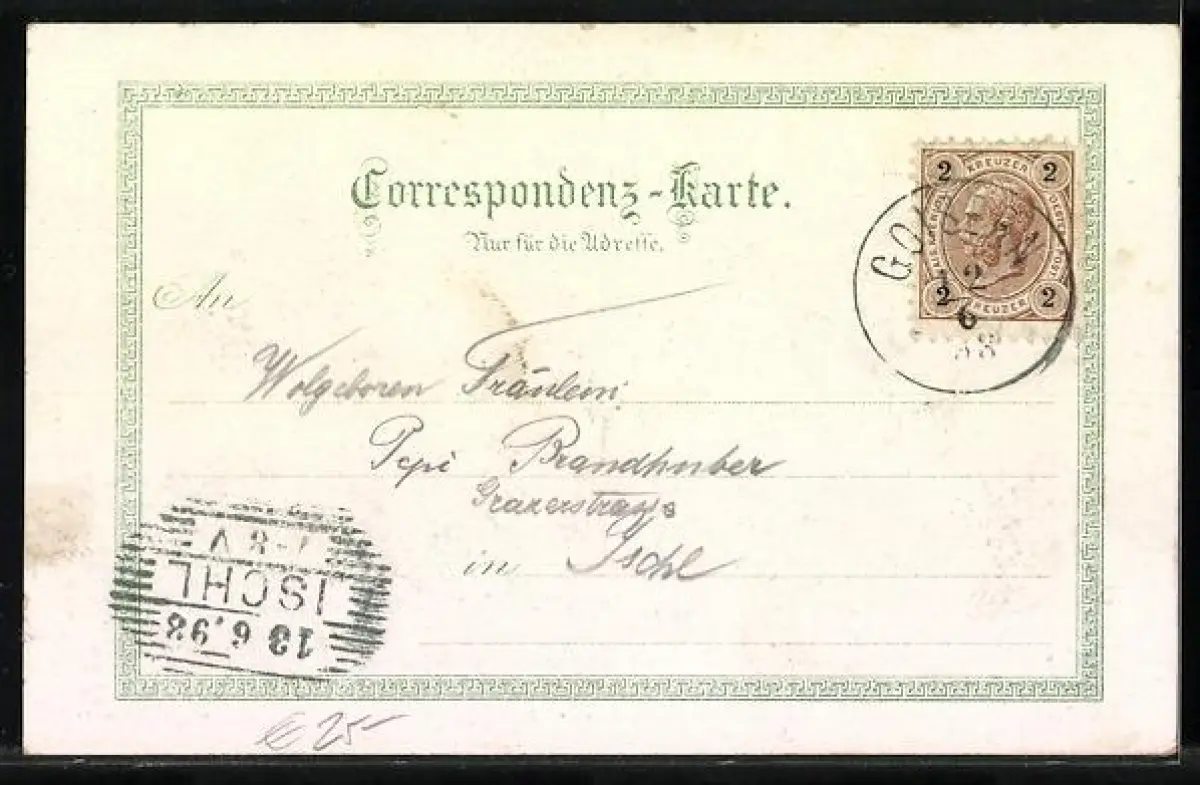 Correspondenz-Karte.
Nur für die Adresse.
2 KREUZER 2
2 KREUZER 2
GOISERN
12
6
98
An
Wolgeboren Fräulein
Pepi Brandhuber
Grazerstrasse
in Ischl
7-8 V
ISCHL
13 6.98
€ 25-